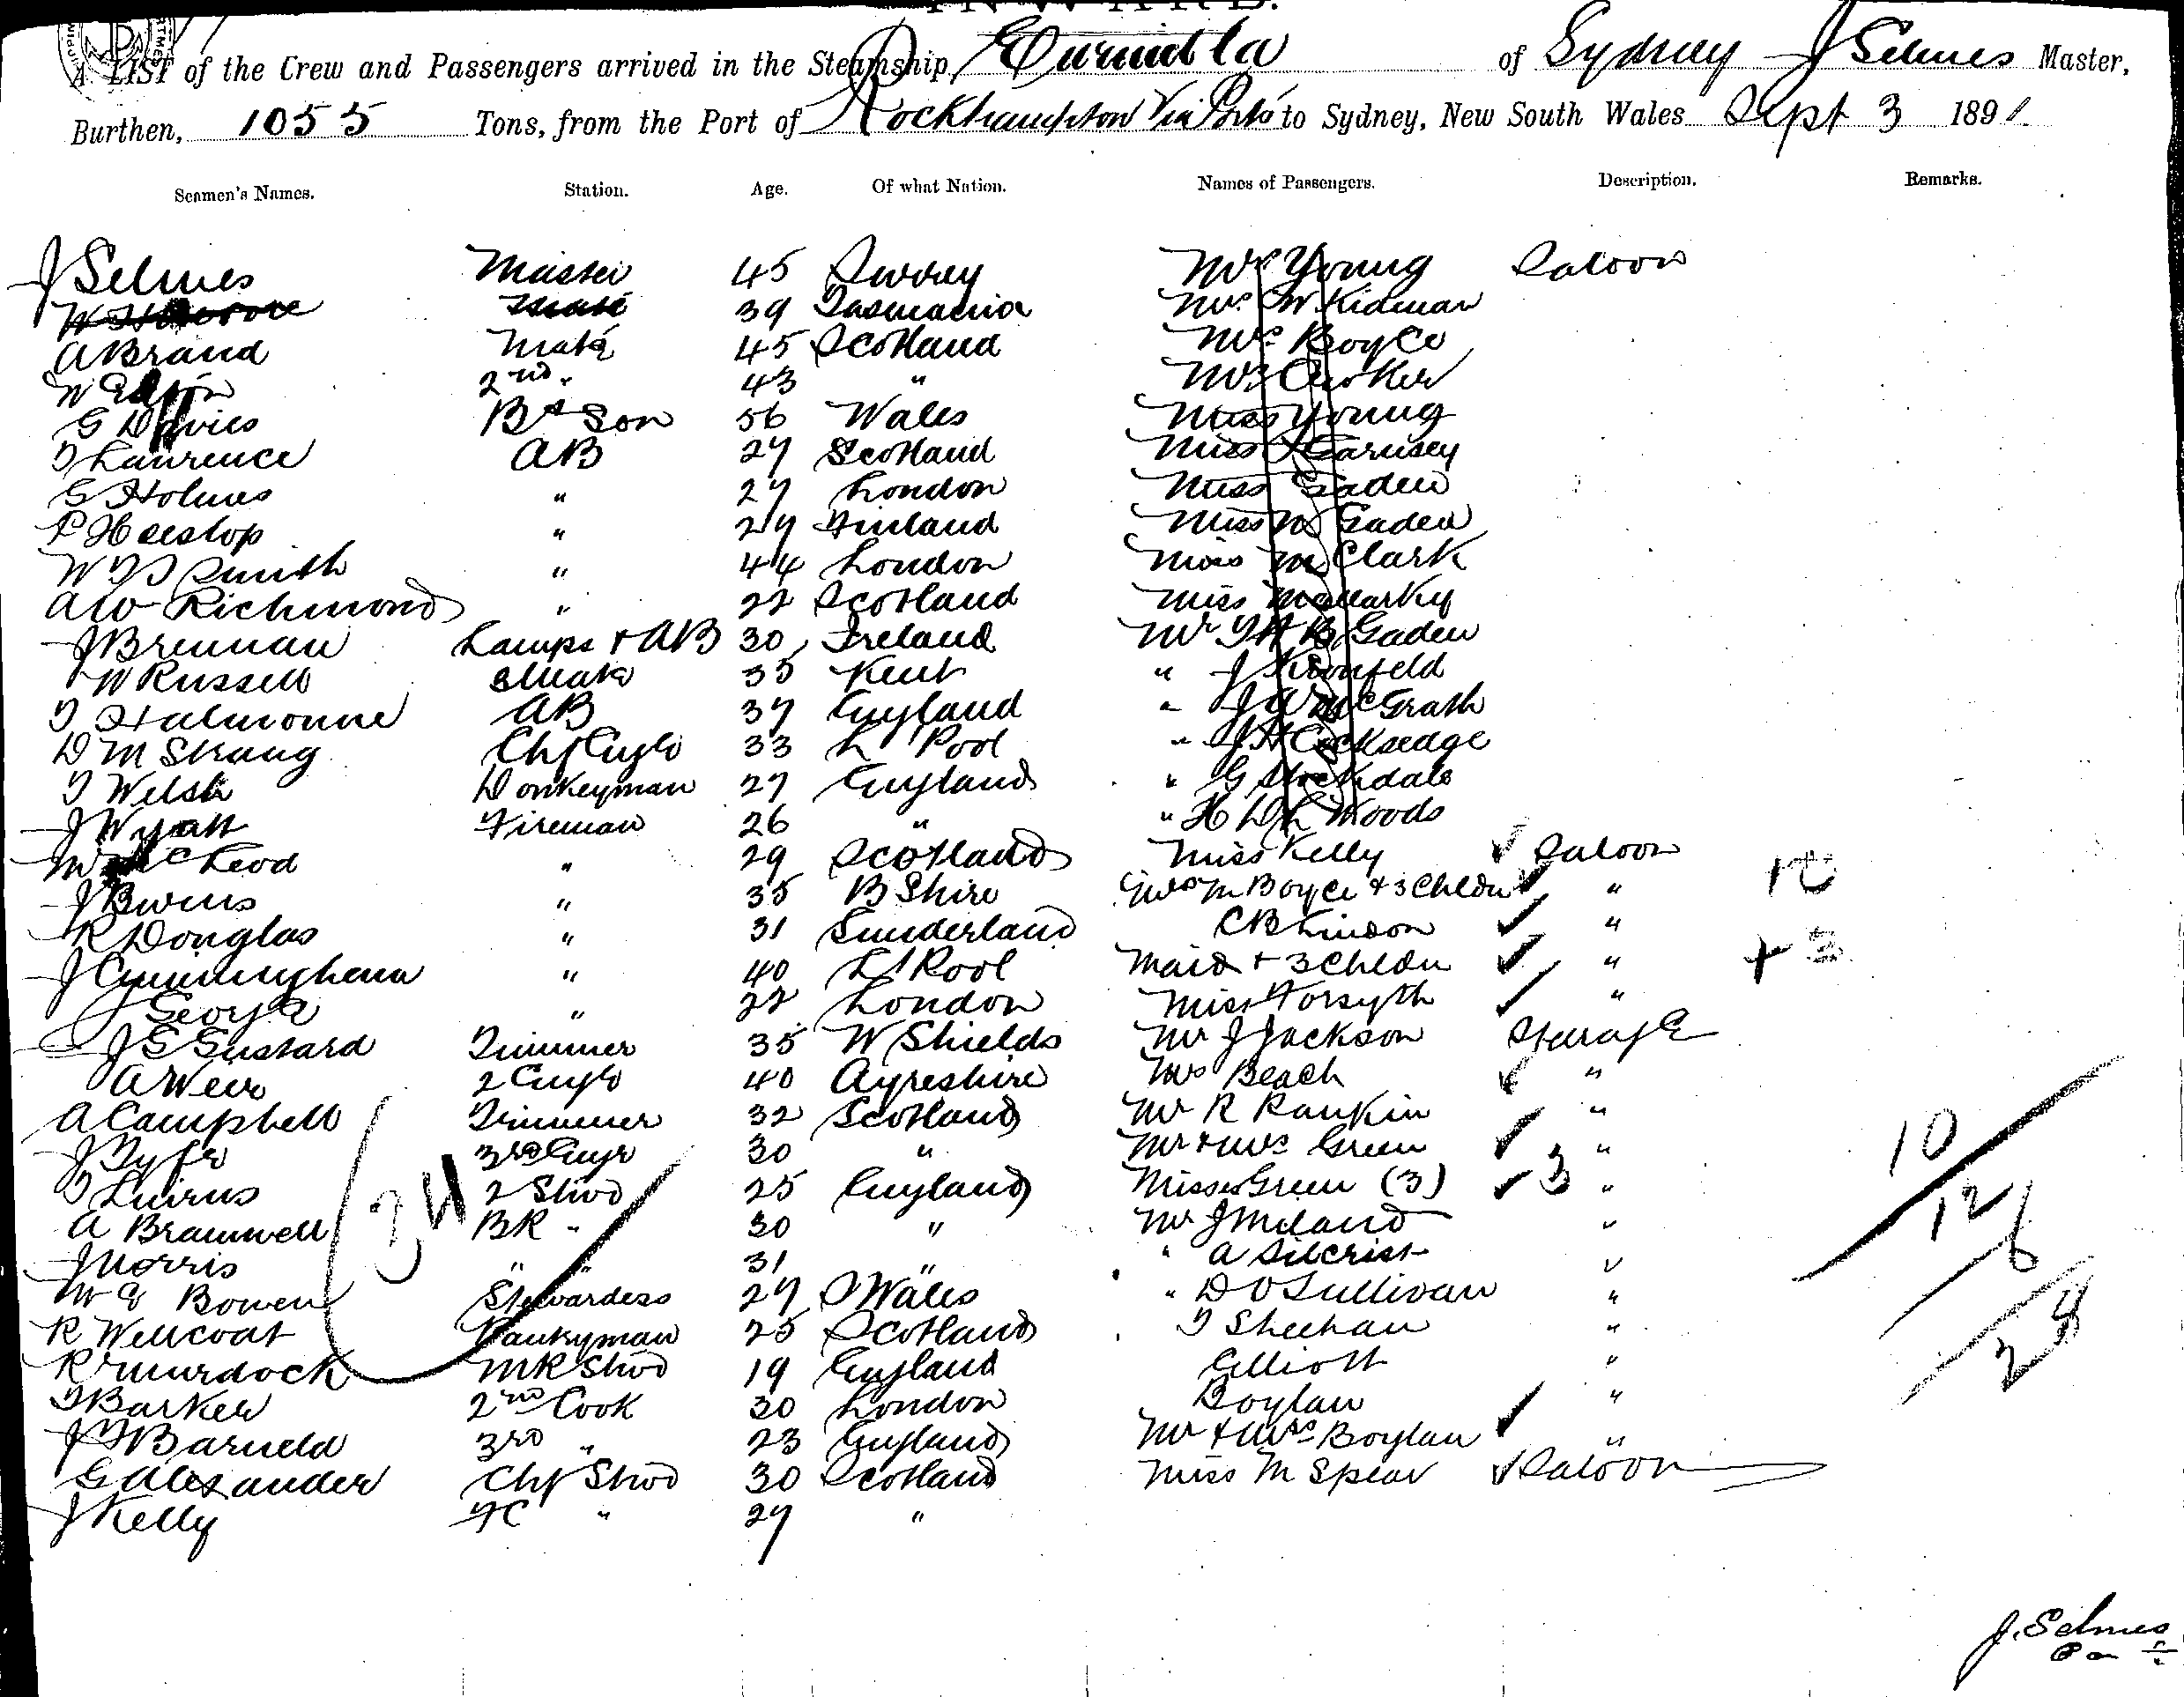 INWARD.
A LIST of the Crew and Passengers arrived in the Steamship Eurimbla of Sydney J Selmes Master,
Burthen, 1055 Tons, from the Port of Rockhampton Via Ports to Sydney, New South Wales Sept 3 1891
Seamen's Names. Station. Age. Of what Nation. Names of Passengers. Description. Remarks.
J Selmes Master 45 Surrey Mrs Young Saloon
W Mate 39 Tasmania Mrs W Kidman
A Brand Mate 45 Scotland Mrs Boyce
W 2nd " 43 " Mrs
G Davies Bs Son 56 Wales Miss Young
T Lawrence AB 27 Scotland Miss Garnsey
G Holmes " 27 London Miss Gaden
P Heeslop " 29 Finland Miss Gaden
W T Smith " 44 London Miss M Clark
A W Richmond " 22 Scotland Miss
J Brennan Lamps + AB 30 Ireland Mr T H B Gaden
W Russell 3 Mate 35 Kent " J
T Halmonne AB 37 England " J A McGrath
D M Strang Chf Engr 33 L'Pool " J H Cocksedge
T Welsh Donkeyman 27 England " G Stockdale
J Wyatt Fireman 26 " " H D L Woods
M McLeod " 29 Scotland Miss Kelly Saloon
J Bwens " 35 B Shire Mrs M Boyce + 3 Chldn "
R Douglas " 31 Sunderland C B Linson "
J Cunningham " 40 L'Pool Maid + 3 Chldn " + 3
J George " 22 London Miss Forsyth "
J G Gustard Trimmer 35 W Shields Mr J Jackson Steerage
A Weir 2 Engr 40 Ayreshire Mrs Beach "
A Campbell Trimmer 32 Scotland Mr R Rankin "
J Fyfe 3rd Engr 30 " Mr + Mrs Green " 10
T Luirus 2 Stwd 25 England Misses Green (3) 3 " 12
A Bramwell 34 BR " 30 " Mr J Meland " 6
J Morris " " 31 " " A Silcrist "
M E Bowen Stewardess 29 S Wales " D O Sullivan " 28
R Wellcoat Pantryman 25 Scotland T Sheehan "
R Murdock MR Stwd 19 England Elliott "
T Barker 2nd Cook 30 London Boylan "
J T Barneld 3rd " 23 England Mr + Mrs Boylan "
G Alexander Chf Stwd 30 Scotland Miss M Spear Saloon
J Kelly FC " 29 "
J. Selmes